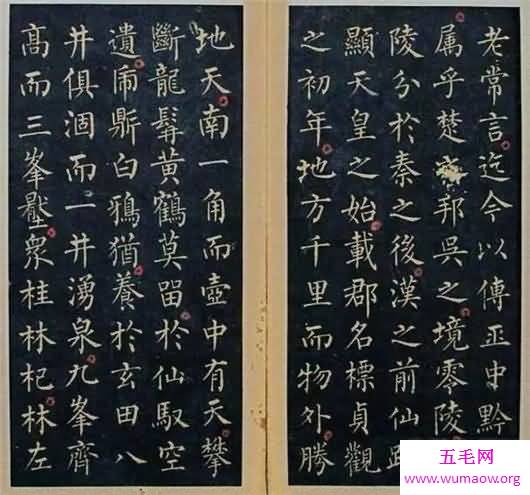 老常言迄今以傳丕中黔
属乎楚邦吳之境零陵
陵分於秦之後漢之前仙
顯天皇之始載郡名標貞觀
之初年地方千里而物外勝
地天南一角而壺中有天攀
斷龍髯黃鶴莫留於仙馭空
遺閙鼎白鴉猶養於玄田八
井俱涸而一井湧泉九峯齊
髙而三峯壓眾桂林杞林左
五毛网
www.wumaow.org